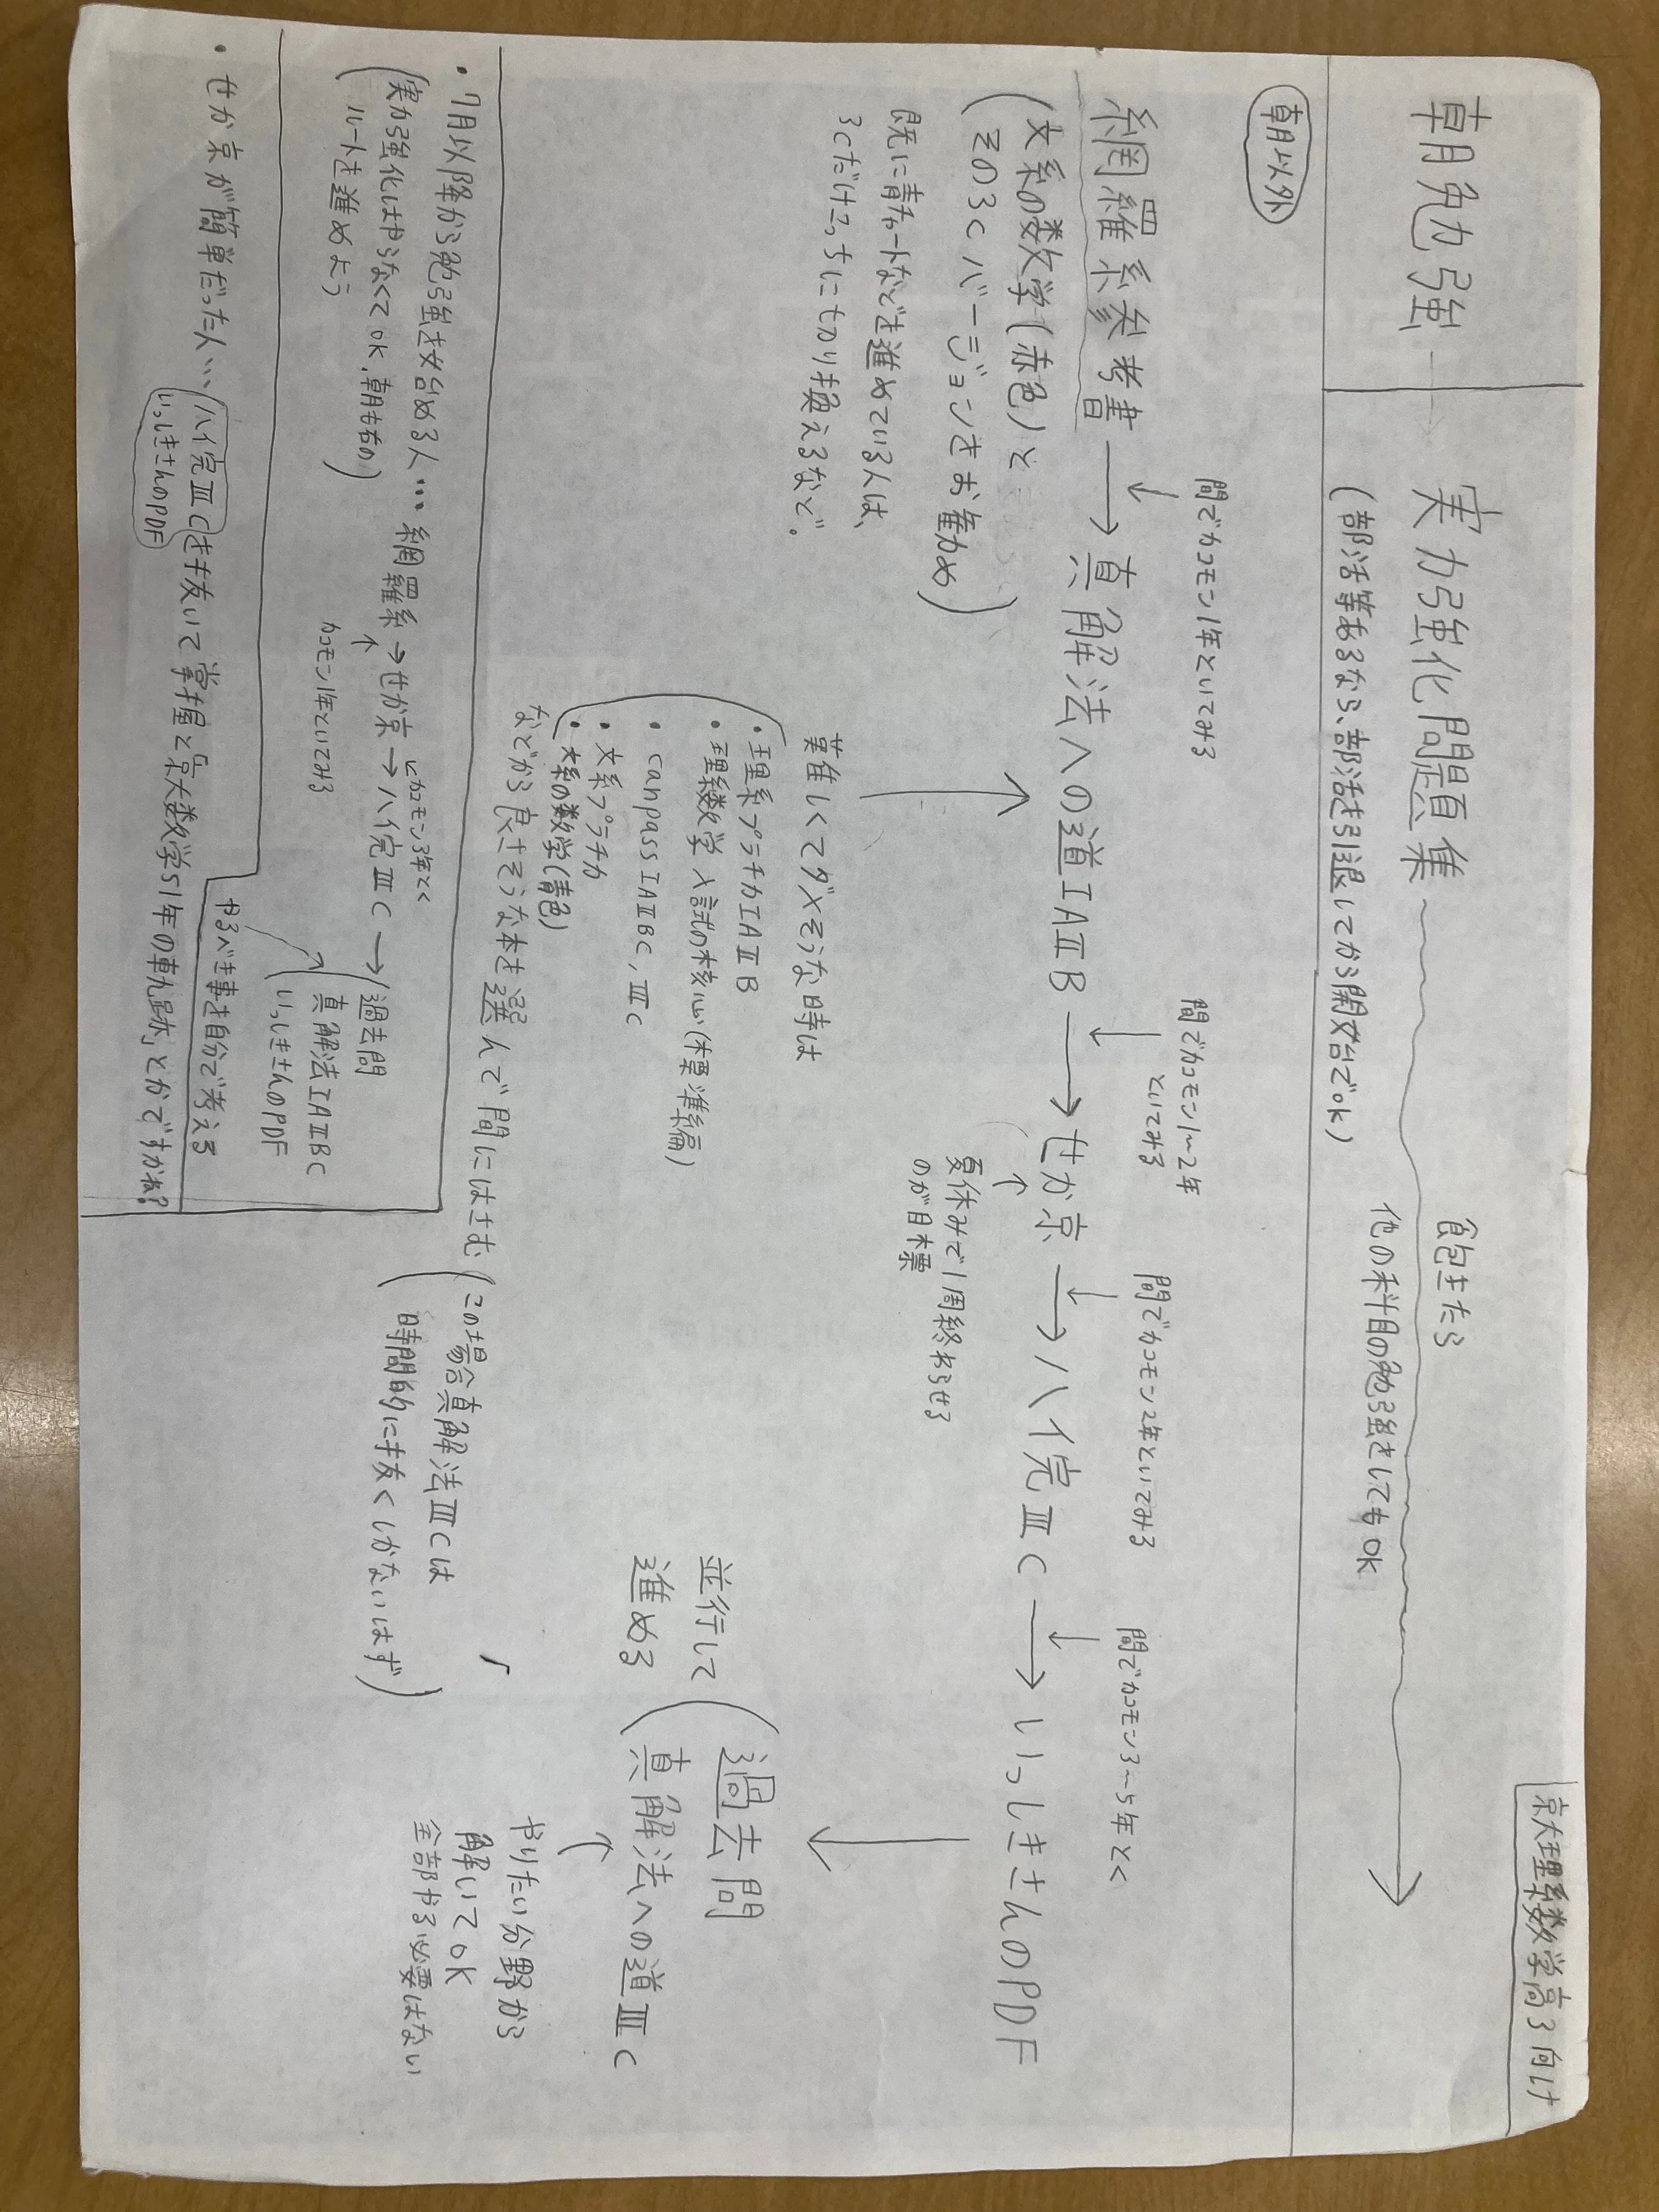 京大理系数学高3向け
朝勉強
実力強化問題集
飽きたら
他の科目の勉強をしてもOK
(部活等あるなら、部活を引退してから開始でOK)
朝以外
間でカコモン1年といてみる
間でカコモン1~2年
といてみる
間でカコモン2年といてみる
間でカコモン3~5年とく
網羅系参考書→真解法への道ⅠAⅡB→せか京→ハイ完ⅢC→いっしきさんのPDF
(文系の数学(赤色)と
その3Cバージョンをお薦め)
既に青チャートなどを進めている人は、
3Cだけこっちにきり換えるなど。
夏休みで1周終わらせる
のが目標
難しくてダメそうな時は
・理系プラチカⅠAⅡB
・理系数学入試の核心(標準編)
・canpassⅠAⅡBC,ⅢC
・文系プラチカ
・文系の数学(青色)
などから良さそうな本を選んで間にはさむ
(この場合真解法ⅢCは
時間的に抜くしかないはず)
並行して
進める
過去問
真解法への道ⅢC
やりたい分野から
解いてOK
全部やる必要はない
・7月以降から勉強を始める人…網羅系→せか京→ハイ完ⅢC→
(実力強化はやらなくてOK、朝も右の
ルートを進めよう)
カコモン1年といてみる
カコモン3年とく
過去問
真解法ⅠAⅡBC
いっしきさんのPDF
やるべき事を自分で考える
・せか京が簡単だった人…ハイ完ⅢCを抜いて掌握と「京大数学51年の軌跡」とかですかね?
いっしきさんのPDF